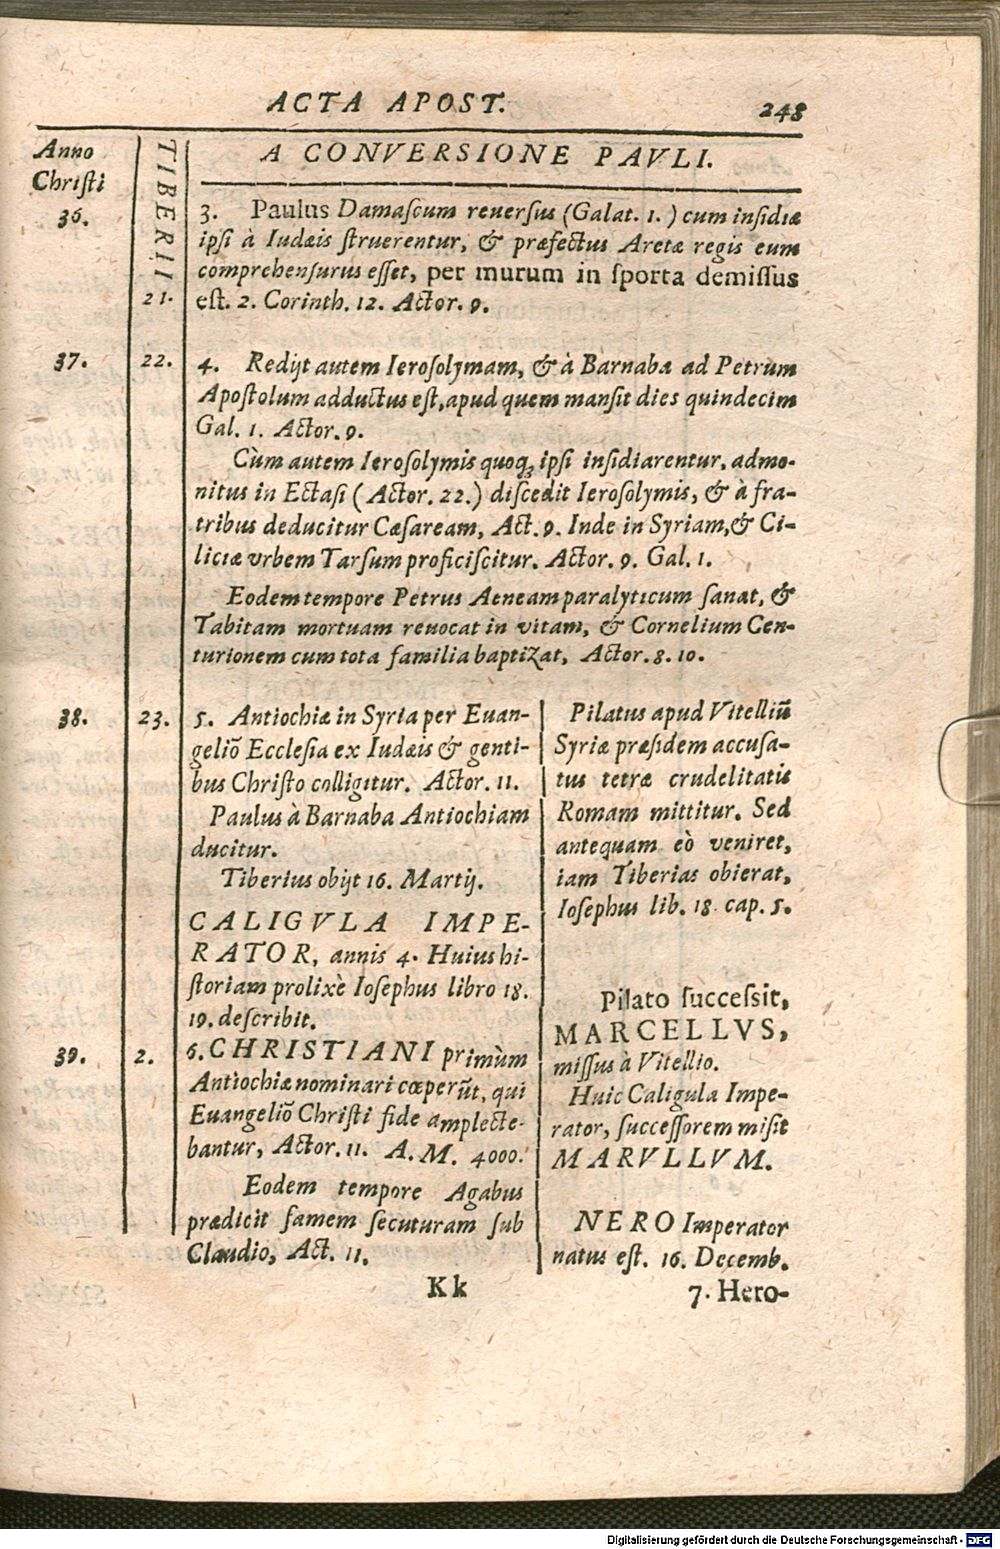 ACTA APOST. 248
Anno
Chriſti
TIBERII
A CONVERSIONE PAVLI.
36. 21. 3. Paulus Damaſcum reuerſus (Galat. 1.) cum inſidiæ
ipſi à Iudæis ſtruerentur, & præfectus Aretæ regis eum
comprehenſurus eſſet, per murum in ſporta demiſſus
eſt. 2. Corinth. 12. Actor. 9.
37. 22. 4. Redijt autem Ieroſolymam, & à Barnaba ad Petrum
Apoſtolum adductus eſt, apud quem manſit dies quindecim
Gal. 1. Actor. 9.
Cùm autem Ieroſolymis quoq; ipſi inſidiarentur, admo-
nitus in Ectaſi (Actor. 22.) diſcedit Ieroſolymis, & à fra-
tribus deducitur Cæſaream, Act. 9. Inde in Syriam, & Ci-
liciæ vrbem Tarſum proficiſcitur. Actor. 9. Gal. 1.
Eodem tempore Petrus Aeneam paralyticum ſanat, &
Tabitam mortuam reuocat in vitam, & Cornelium Cen-
turionem cum tota familia baptizat, Actor. 8. 10.
38. 23. 5. Antiochiæ in Syria per Euan-
geliõ Eccleſia ex Iudæis & genti-
bus Chriſto colligitur. Actor. 11.
Paulus à Barnaba Antiochiam
ducitur.
Tiberius obijt 16. Martij.
CALIGVLA IMPE-
RATOR, annis 4. Huius hi-
ſtoriam prolixè Ioſephus libro 18.
19. deſcribit.
39. 2. 6. CHRISTIANI primùm
Antiochiæ nominari cœperũt, qui
Euangeliõ Chriſti fide amplecte-
bantur, Actor. 11. A. M. 4000.
Eodem tempore Agabus
prædicit famem ſecuturam ſub
Claudio, Act. 11.
Pilatus apud Vitelliũ
Syriæ præſidem accuſa-
tus tetræ crudelitatis
Romam mittitur. Sed
antequam eò veniret,
iam Tiberias obierat,
Ioſephus lib. 18. cap. 5.
Pilato ſucceſsit,
MARCELLVS,
miſſus à Vitellio.
Huic Caligula Impe-
rator, ſucceſſorem miſit
MARVLLVM.
NERO Imperator
natus eſt. 16. Decemb.
Kk 7. Hero-
Digitalisierung gefördert durch die Deutsche Forschungsgemeinschaft - DFG